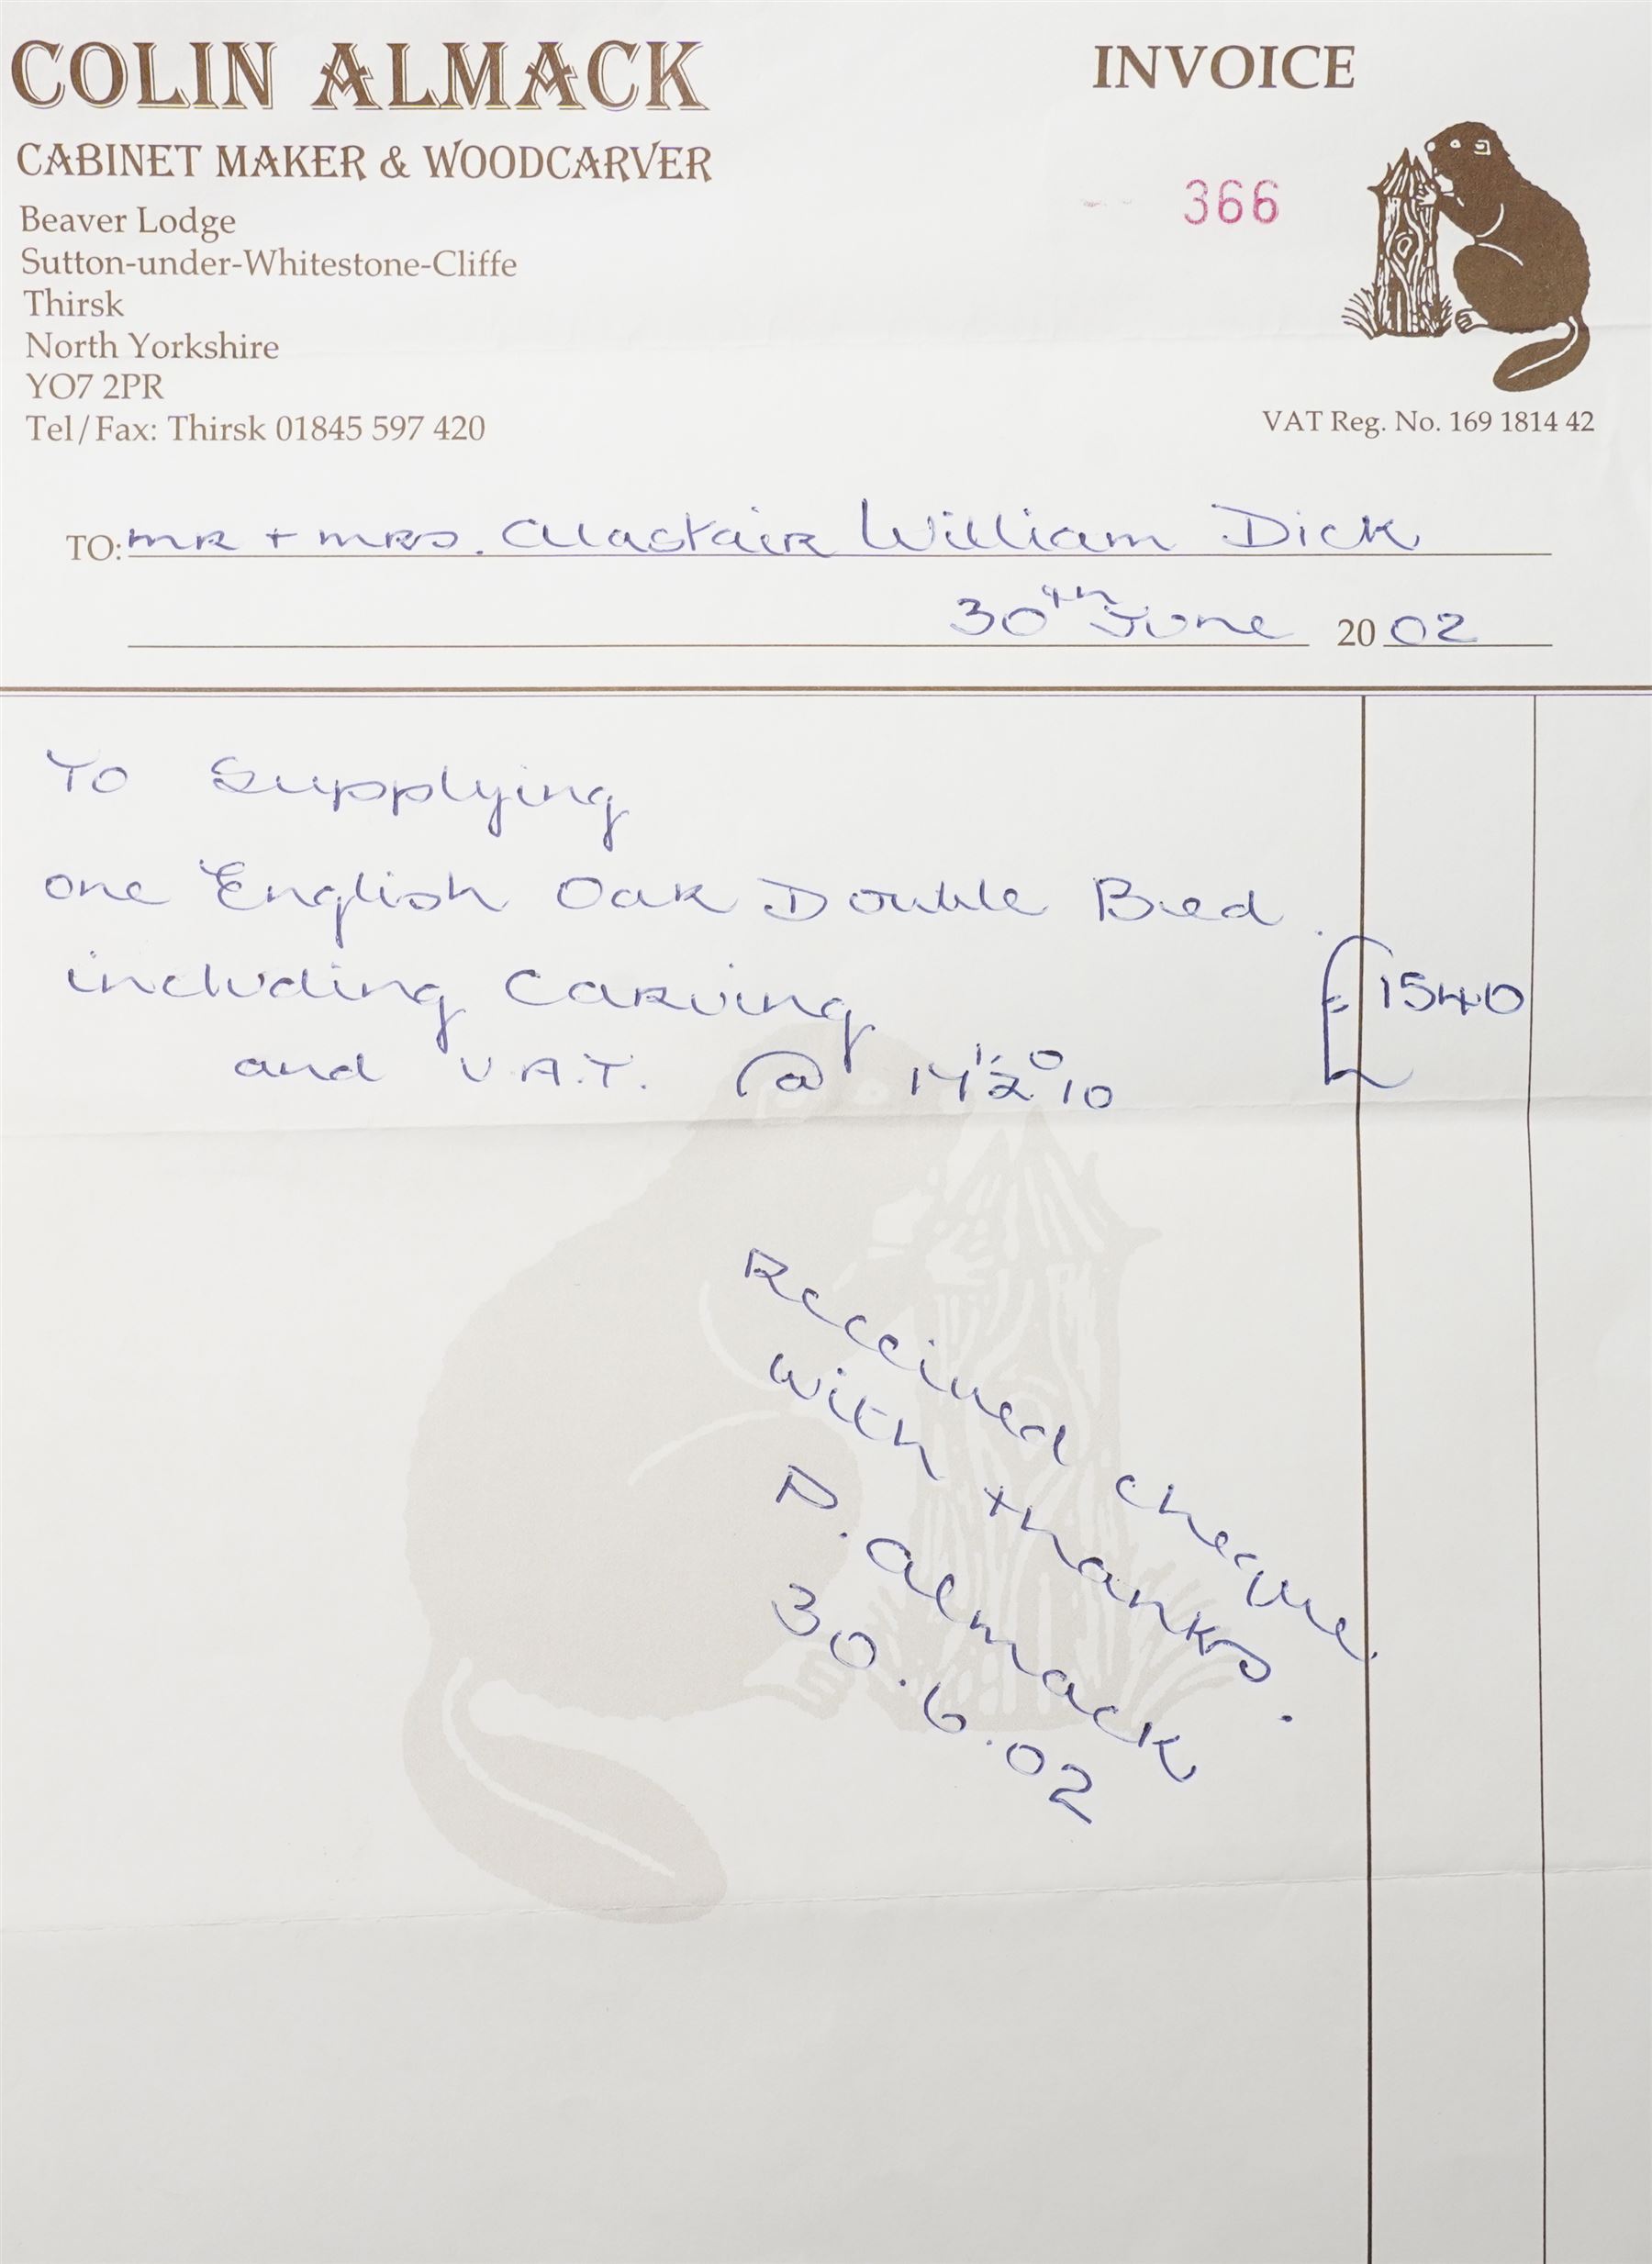 COLIN ALMACK
CABINET MAKER & WOODCARVER
Beaver Lodge
Sutton-under-Whitestone-Cliffe
Thirsk
North Yorkshire
YO7 2PR
Tel/Fax: Thirsk 01845 597 420
INVOICE
366
VAT Reg. No. 169 1814 42
TO: MR + MRS. Alastair William Dick
30th June 2002
To Supplying
one English Oak Double Bed.
including Carving £1540
and V.A.T. @ 17½%
Received cheque
with thanks.
P. Almack
30.6.02